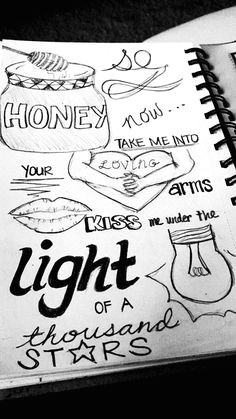 HONEY
SO
now...
TAKE ME INTO
YOUR LOVING
arms
KISS me under the
light
OF A
thousand
STARS